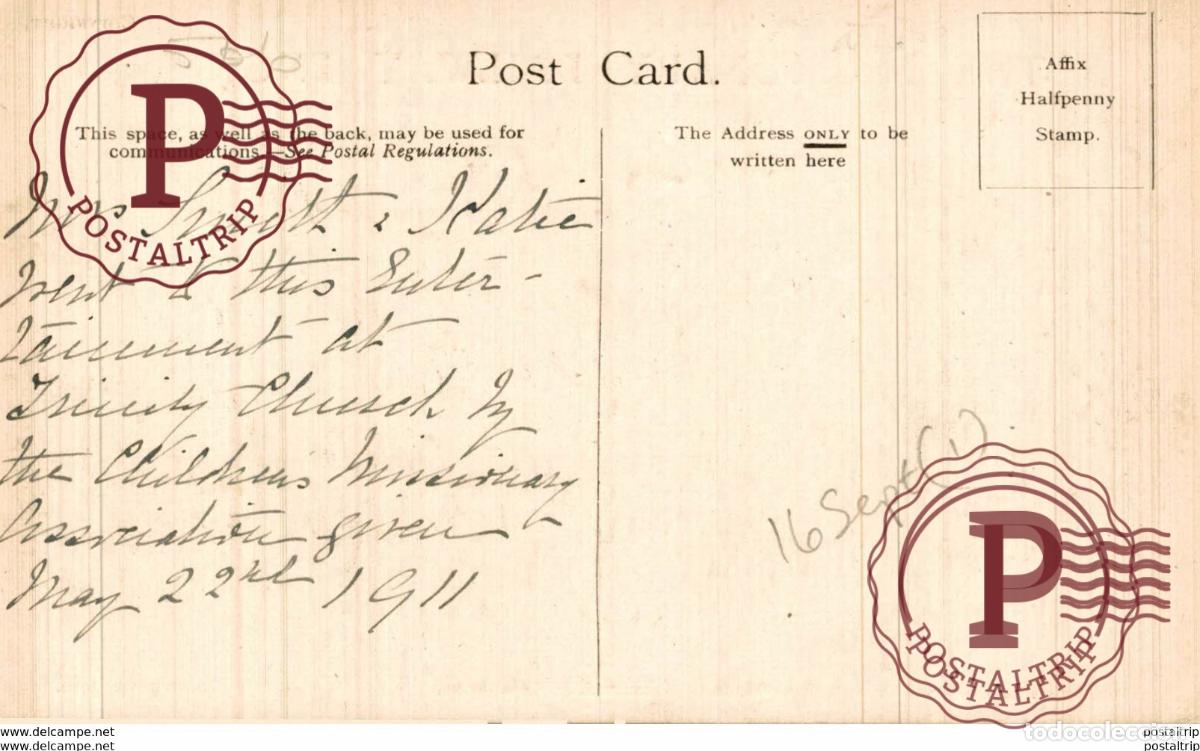 Post Card.
Affix
Halfpenny
Stamp.
This space, as well as the back, may be used for
communications.—See Postal Regulations.
The Address ONLY to be
written here
Mrs & Katie
went to this Enter-
tainment at
Trinity Church by
the Children's Missionary
Association given
May 22nd 1911
16 Sept (1)
P
POSTALTRIP
P
POSTALTRIP
POSTALTRIP
todocoleccion
www.delcampe.net
www.delcampe.net
postaltrip
postaltrip